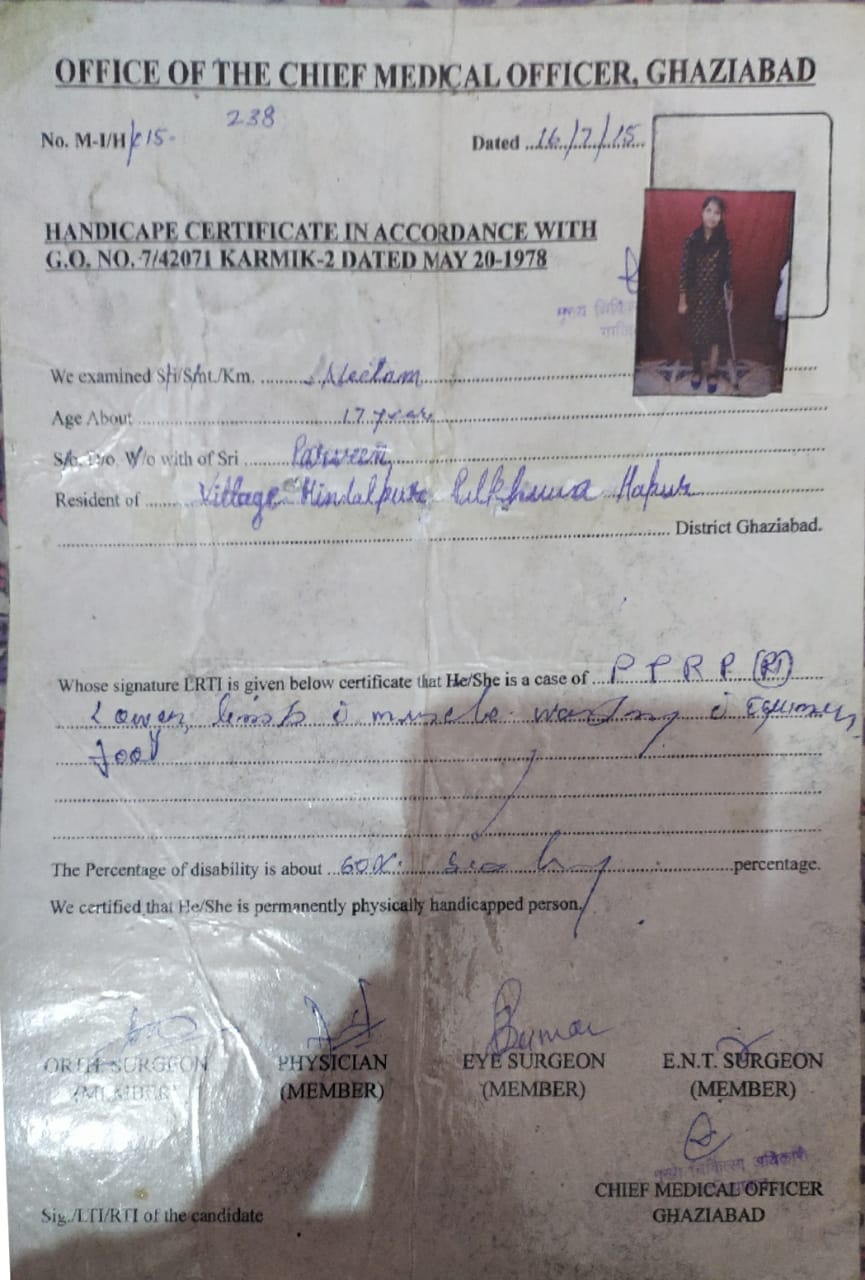 OFFICE OF THE CHIEF MEDICAL OFFICER, GHAZIABAD
238
No. M-I/H/ 15- Dated ...16/7/15...
HANDICAPE CERTIFICATE IN ACCORDANCE WITH
G.O. NO. 7/42071 KARMIK-2 DATED MAY 20-1978
मुख्य
We examined Sri/Smt./Km. ......... Neelam
Age About ......... 17 year
S/o. D/o. W/o with of Sri ......... Parveen
Resident of ......... Village Hindalpur Pilkhuwa Hapur
......... District Ghaziabad.
Whose signature LRTI is given below certificate that He/She is a case of ... P P R P (Rt)
Lower limb c muscle wasting c Equinus
foot
The Percentage of disability is about ...60%. Sixty ......... percentage.
We certified that He/She is permanently physically handicapped person.
ORTH SURGEON PHYSICIAN EYE SURGEON E.N.T. SURGEON
(MEMBER) (MEMBER) (MEMBER) (MEMBER)
मुख्य चिकित्सा अधिकारी
CHIEF MEDICAL OFFICER
GHAZIABAD
Sig./LTI/RTI of the candidate